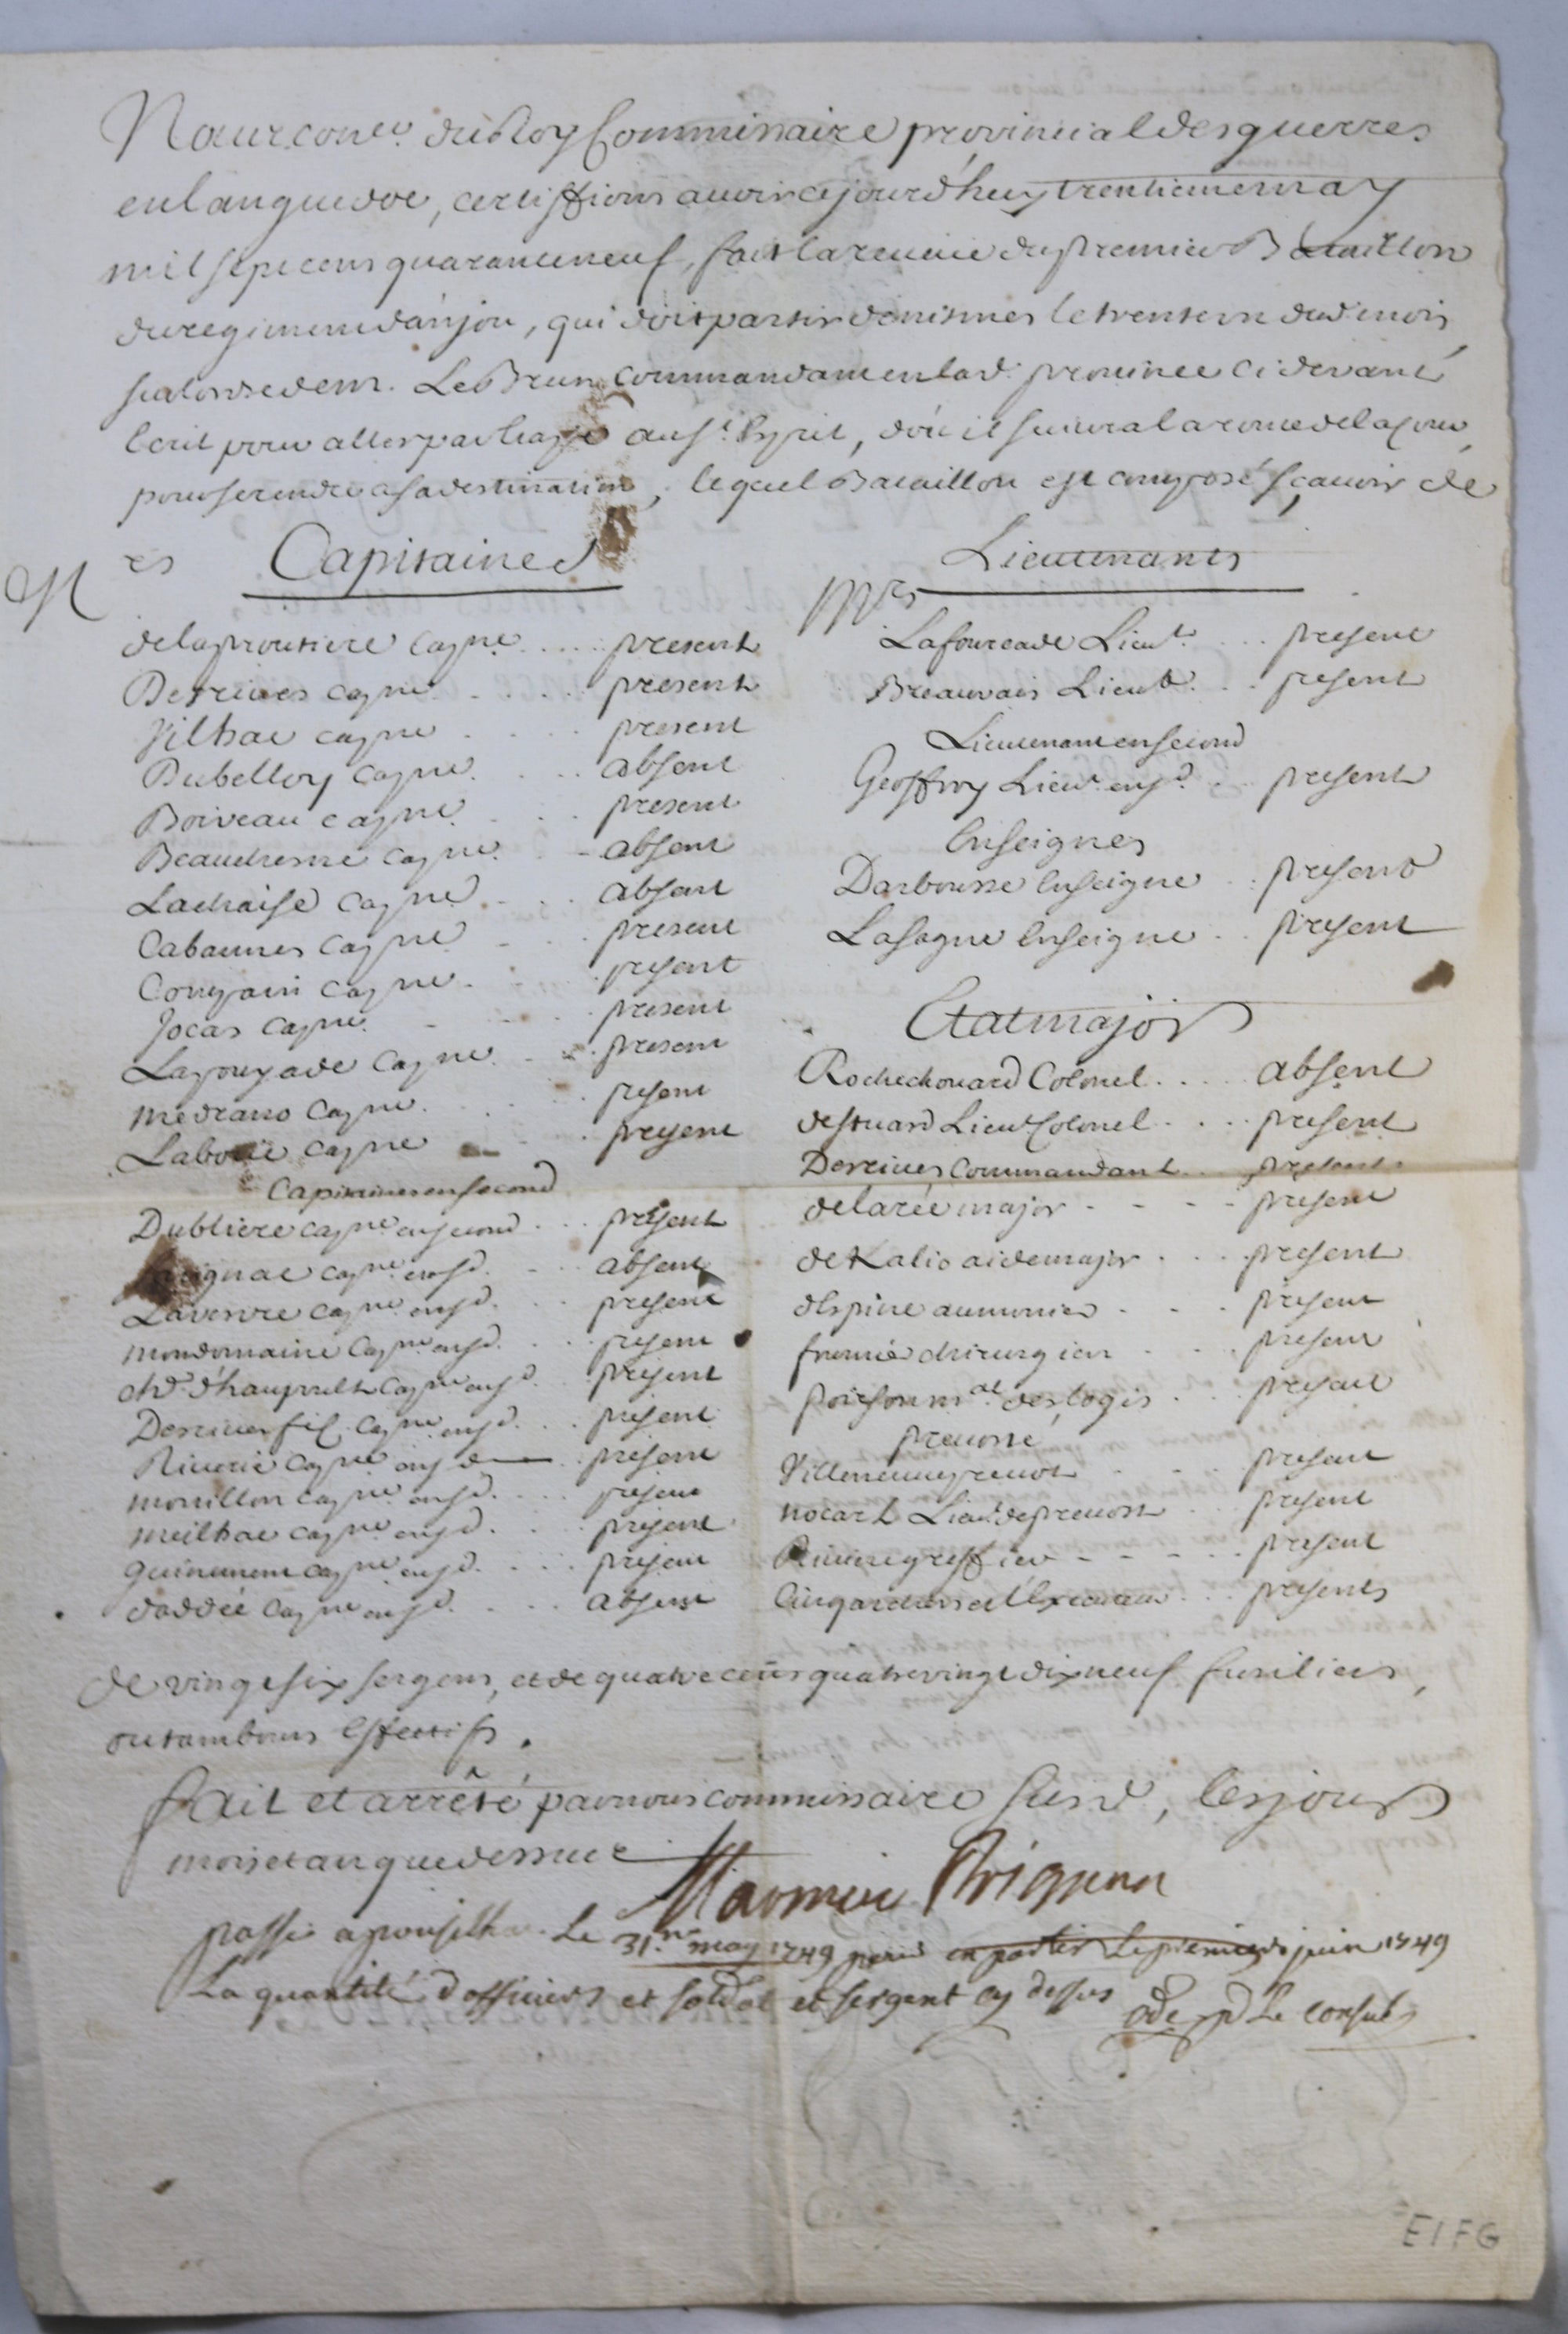 Nous con.er du Roy Commissaire provincial des guerres
en languedoc, certiffions avoir cejourd'huy trentieme may
mil sept cens quarante neuf, fait la reveüe du premier Bataillon
du regiment d'anjou, qui doit partir de nismes le trente un dud. mois,
sur l'ordre de m.r Le Brun commandant en lad. province ci devant
ecrit pour aller par au S.t Esprit, d'où il suivra la route de la cour,
pour se rendre a sa destination, lequel Bataillon est composé, sçavoir de
M rs Capitaines
delaproutiere cap.ne present
Derrives cap.ne present
Vilhac cap.ne present
Dubelloy cap.ne absent
Boiveau cap.ne present
Beauchesne cap.ne absent
Lachaise cap.ne absent
Cabannes cap.ne present
Compain cap.ne present
Jocas cap.ne present
Lapoujade cap.ne present
medrano cap.ne present
Laboüe cap.ne present
Capitaines en second
Dubliere cap.ne en second present
cap.ne en s.d absent
Lavendre cap.ne en s.d present
mondomaine cap.ne en s.d present
ch.er d'hautpoult cap.ne en s.d present
Derrives fils cap.ne en s.d present
Riverie cap.ne en s.d present
mouillon cap.ne en s.d present
meilhac cap.ne en s.d present
guinement cap.ne en s.d present
daddée cap.ne en s.d absent
Mrs Lieutenants
Lafourcade Lieut. present
Breauvais Lieut. present
Lieutenant en second
Geoffroy Lieut. en s.d present
Enseignes
Darbousse Enseigne present
Lasagne Enseigne present
Etat major
Rochechouard Colonel absent
destuard Lieut. Colonel present
Derrives Commandant present
delarée major present
deKalio aide major present
despine aumonier present
fromié chirurgien present
poisson m.al des logis present
prevosté
Villeneuve prevot present
nocart Lieut. de prevost present
Riviere greffier present
Cinq archers et l'Executeur presents
de vingt six sergens, et de quatre cens quatre vingt dix neuf fusiliers,
ou tambours effectifs.
fait et arrêté par nous commissaire susd., les jour
mois et an que dessus
Marmier Brignon
passé a le 31.me may 1749 pour en partir le premier juin 1749
La quantité d'officiers et soldat et sergent cy dessus Le consul
E1FG